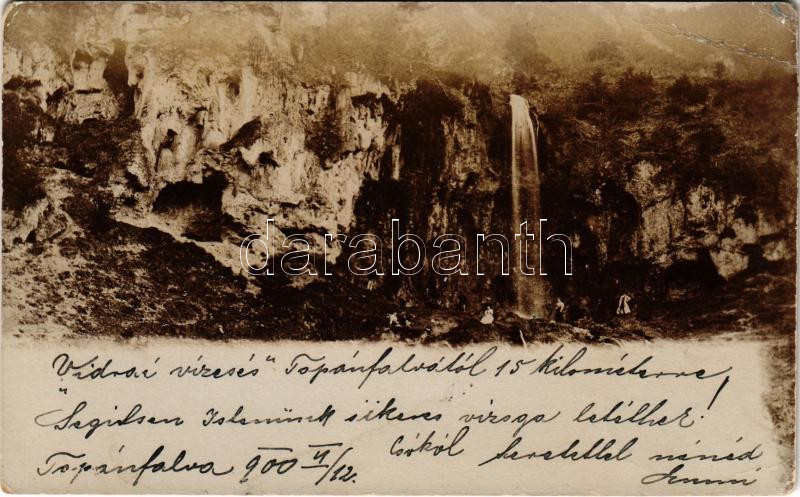 darabanth
"Vidrai vízesés" Topánfalvától 15 kilométerre,
"Segitsen Istenünk sikeres vizsga letételhez!
Csókol szeretettel nénéd
Topánfalva 900 VI/12.